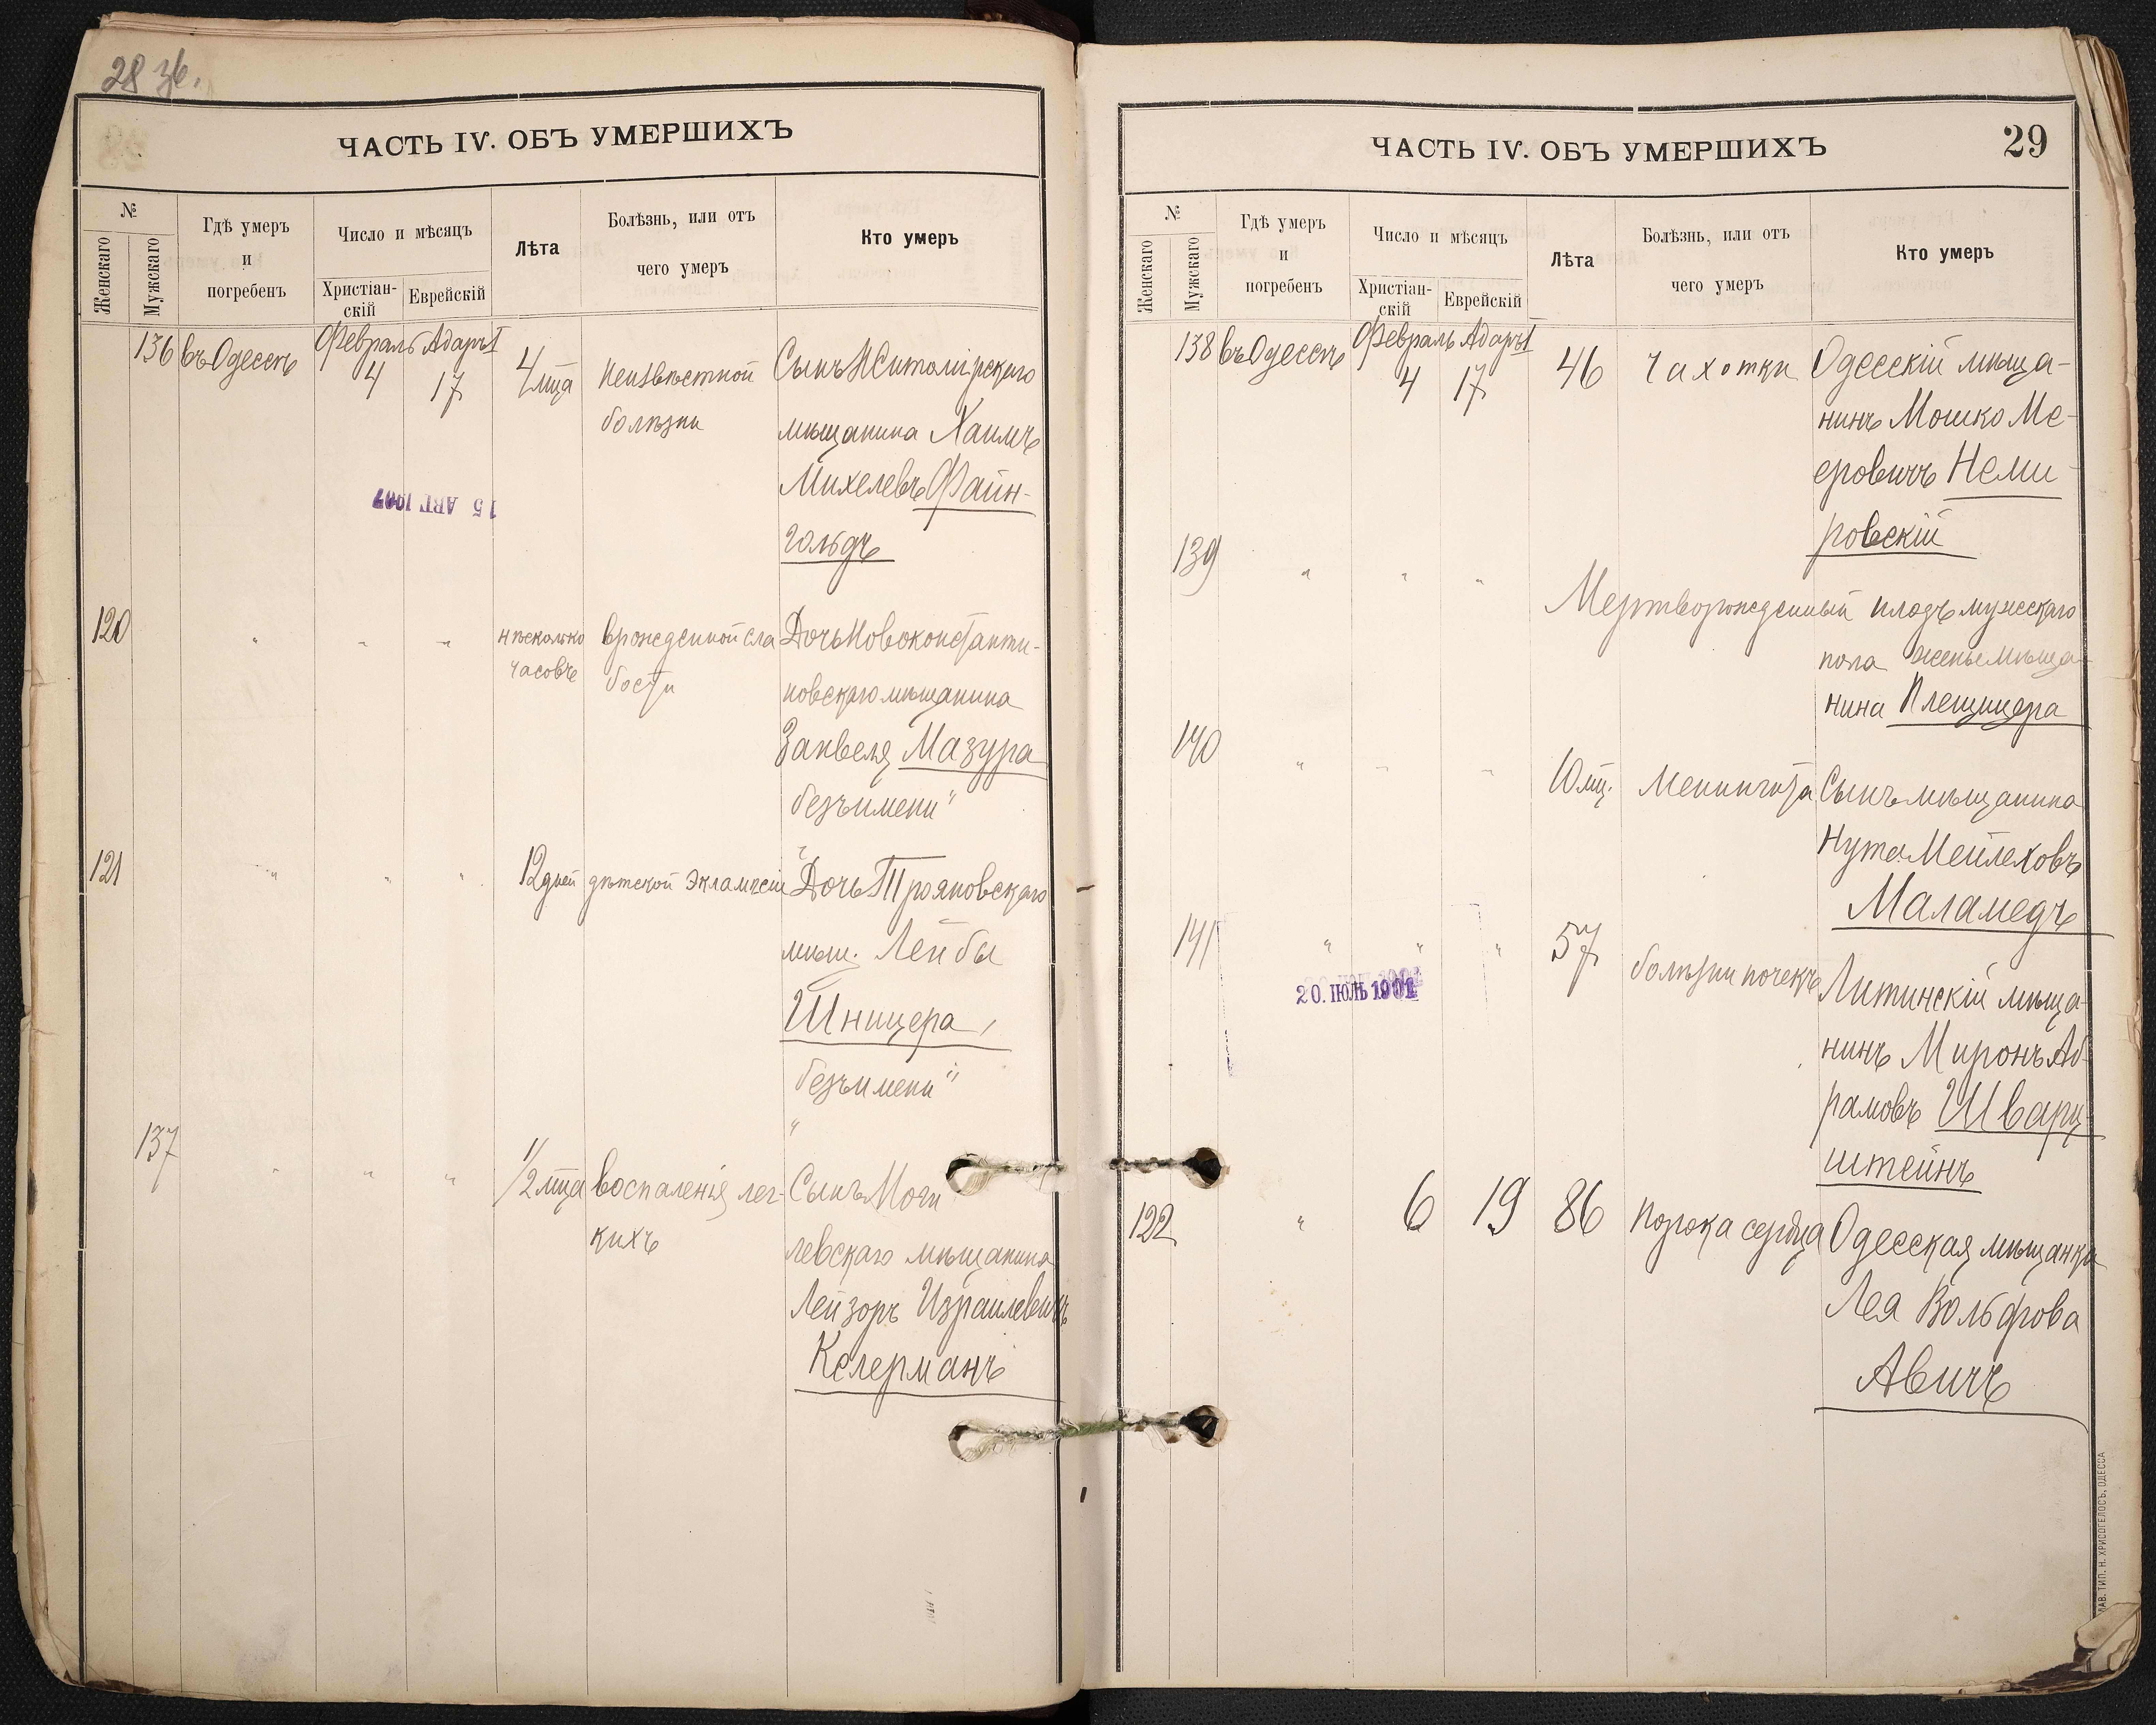 28 зв.
ЧАСТЬ IV. ОБЪ УМЕРШИХЪ
№
Женскаго
Мужскаго
Гдѣ умеръ
и
погребенъ
Число и мѣсяцъ
Христіан-
скій
Еврейскій
Лѣта
Болѣзнь, или отъ
чего умеръ
Кто умеръ
136 въ Одессѣ Февраль Адаръ I
4 17 4 мца неизвѣстной Сынъ Житомірскаго
болѣзни мѣщанина Хаимъ
Михелевъ Файн-
гольдъ
15 АВГ. 1907
120 " " " нѣсколько врожденной сла Дочь Новоконстанти-
часовъ бости новскаго мѣщанина
Занвеля Мазура
безъ имени "
121 " " " 12 дней дѣтской эклампсіи Дочь Трояновскаго
мѣщ. Лейбы
Шницера,
безъ имени "
137 " " " 1/2 мца воспаленія лег- Сынъ Моги
кихъ левскаго мѣщанина
Лейзоръ Израилевичъ
Келерманъ
ЧАСТЬ IV. ОБЪ УМЕРШИХЪ
29
№
Женскаго
Мужскаго
Гдѣ умеръ
и
погребенъ
Число и мѣсяцъ
Христіан-
скій
Еврейскій
Лѣта
Болѣзнь, или отъ
чего умеръ
Кто умеръ
138 въ Одессѣ Февраль Адаръ I
4 17 46 чахотки Одесскій мѣща-
нинъ Мошко Ме-
еровичъ Неми-
ровскій
139 " " " Мертворожденный плодъ мужескаго
пола жены мѣща-
нина Плещицера
140 " " " 10 мц. Менингита Сынъ мѣщанина
Нута Мейлеховъ
Маламедъ
141 " " " 57 болѣзни почекъ Литинскій мѣща-
нинъ Миронъ Аб-
рамовъ Шварц-
штейнъ
20. ІЮЛЬ 1901
122 " 6 19 86 порока сердца Одесская мѣщанка
Лея Вольфова
Авичъ
ЛАВ. ТИП. Н. ХРИСОГЕЛОСЪ, ОДЕССА